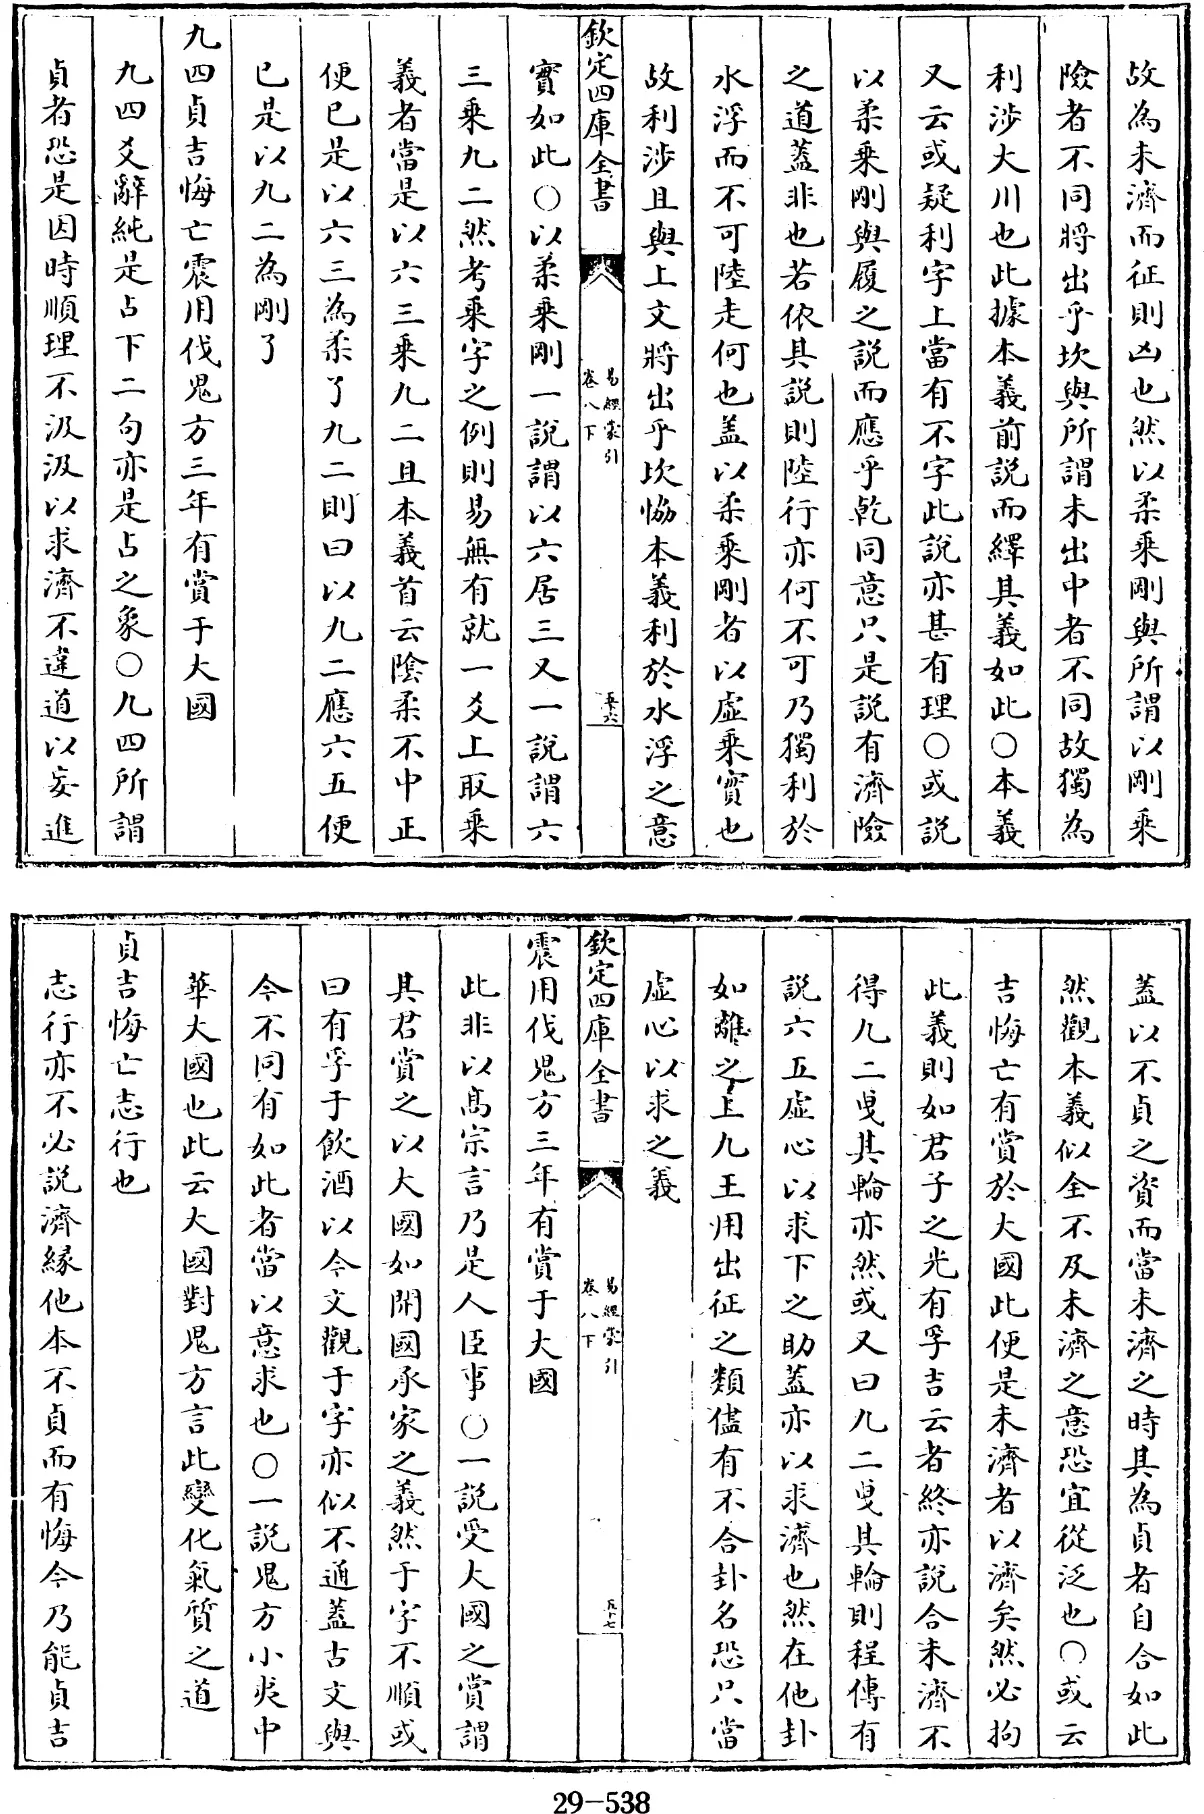 故為未濟而征則凶也然以柔乘剛與所謂以剛乘
險者不同將出乎坎與所謂未出中者不同故獨為
利涉大川也此據本義前説而繹其義如此○本義
又云或疑利字上當有不字此説亦甚有理○或説
以柔乘剛與履之説而應乎乾同意只是説有濟險
之道蓋非也若依其説則陸行亦何不可乃獨利於
水浮而不可陸走何也蓋以柔乘剛者以虛乘實也
故利涉且與上文將出乎坎恊本義利於水浮之意
欽定四庫全書
易經蒙引
卷八下
五十六
實如此○以柔乘剛一說謂以六居三又一說謂六
三乘九二然考乘字之例則易無有就一爻上取乘
義者當是以六三乘九二且本義首云陰柔不中正
便已是以六三為柔了九二則曰以九二應六五便
已是以九二為剛了
九四貞吉悔亡震用伐鬼方三年有賞于大國
九四爻辭純是占下二句亦是占之象○九四所謂
貞者恐是因時順理不汲汲以求濟不違道以妄進
蓋以不貞之資而當未濟之時其為貞者自合如此
然觀本義似全不及未濟之意恐宜從泛也○或云
吉悔亡有賞於大國此便是未濟者以濟矣然必拘
此義則如君子之光有孚吉云者終亦説合未濟不
得九二曵其輪亦然或又曰九二曵其輪則程傳有
説六五虛心以求下之助蓋亦以求濟也然在他卦
如離之上九王用出征之類儘有不合卦名恐只當
虛心以求之義
欽定四庫全書
易經蒙引
卷八下
五十七
震用伐鬼方三年有賞于大國
此非以髙宗言乃是人臣事○一説受大國之賞謂
其君賞之以大國如開國承家之義然于字不順或
曰有孚于飲酒以今文觀于字亦似不通蓋古文與
今不同有如此者當以意求也○一説鬼方小夷中
華大國也此云大國對鬼方言此變化氣質之道
貞吉悔亡志行也
志行亦不必説濟緣他本不貞而有悔今乃能貞吉
29-538